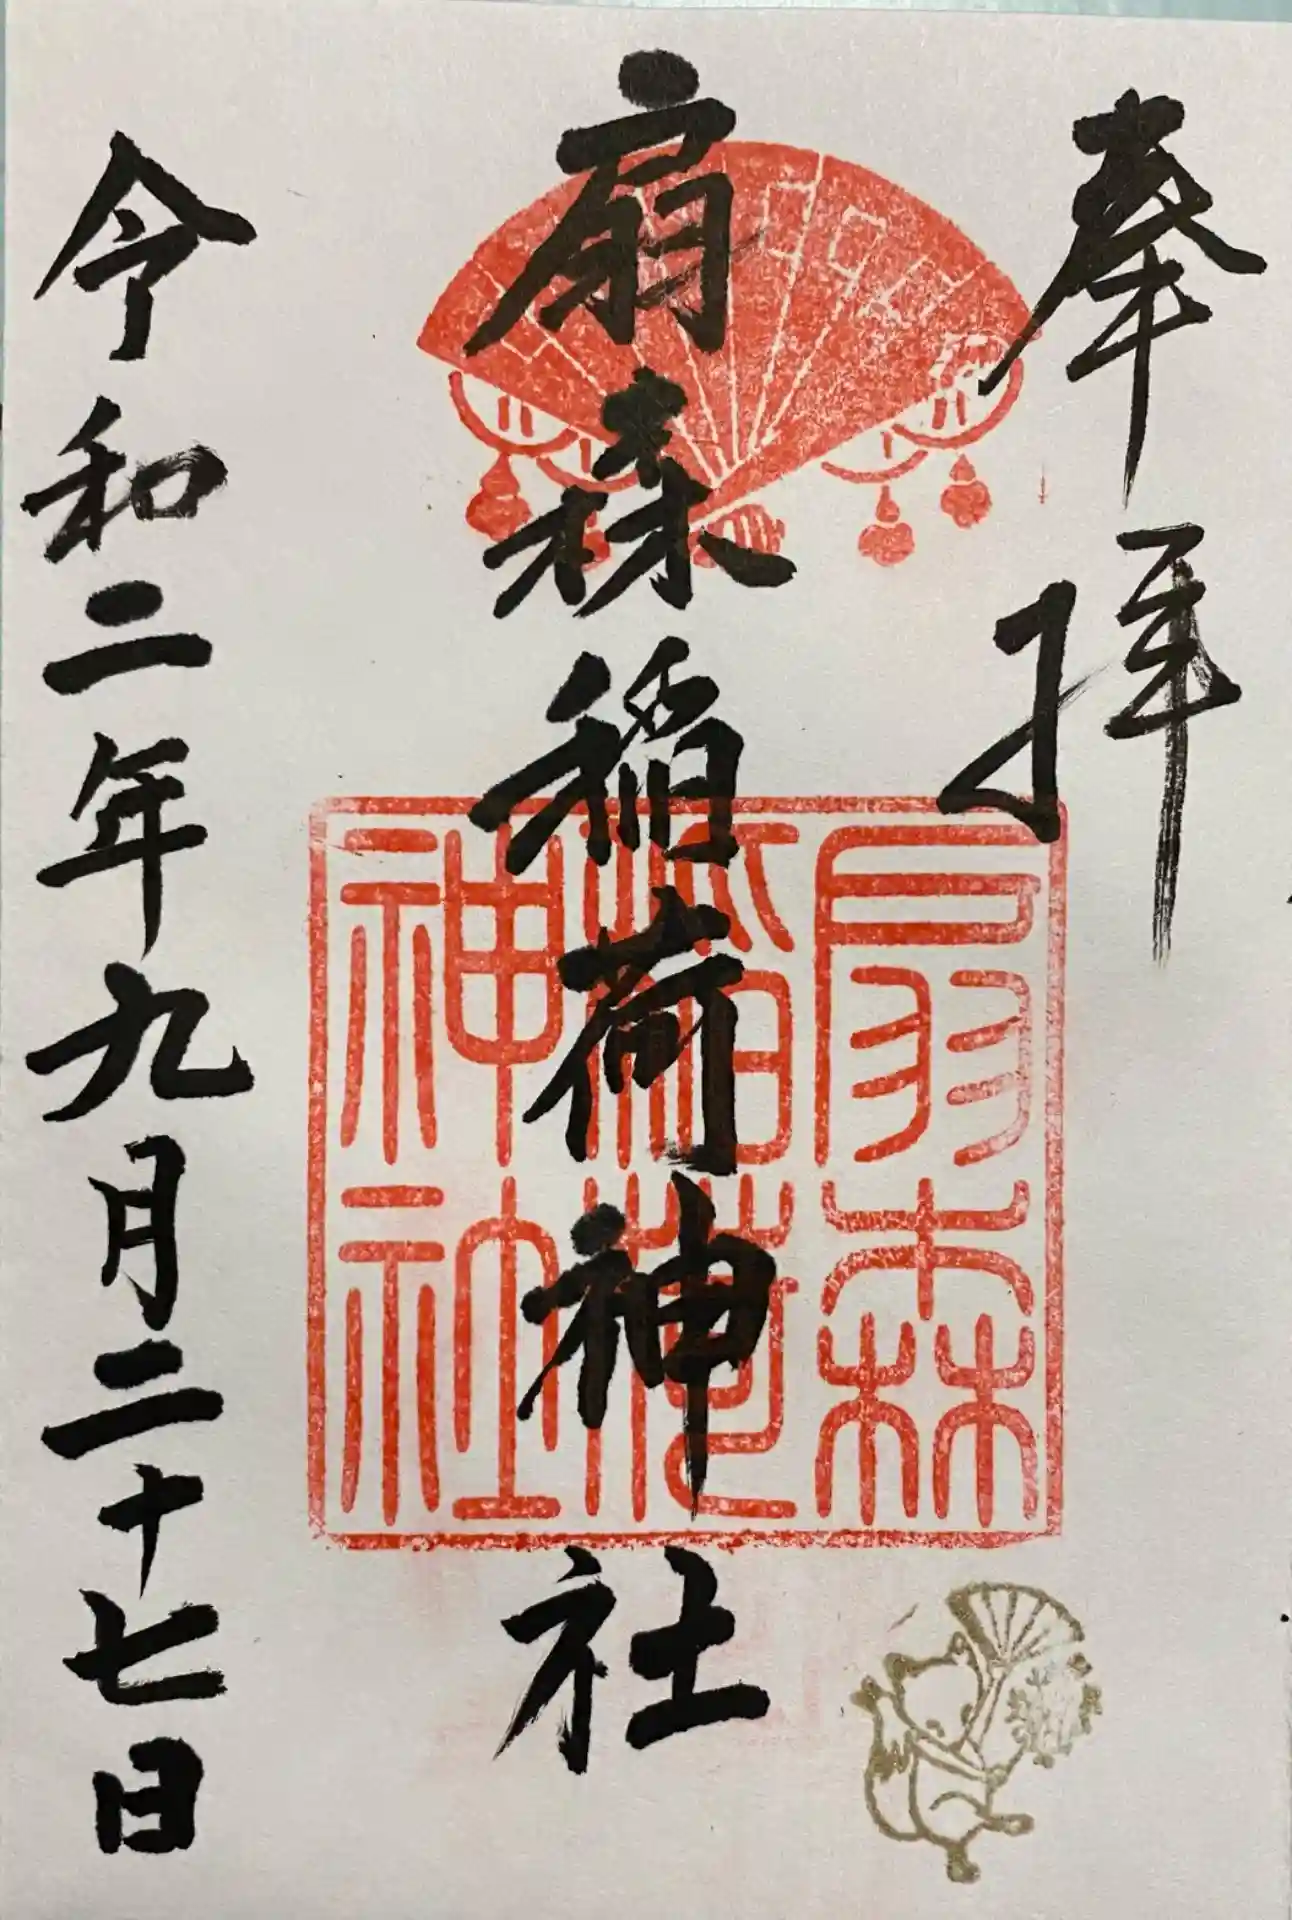 奉拝
扇森稲荷神社
扇森
稲荷
神社
令和二年九月二十七日